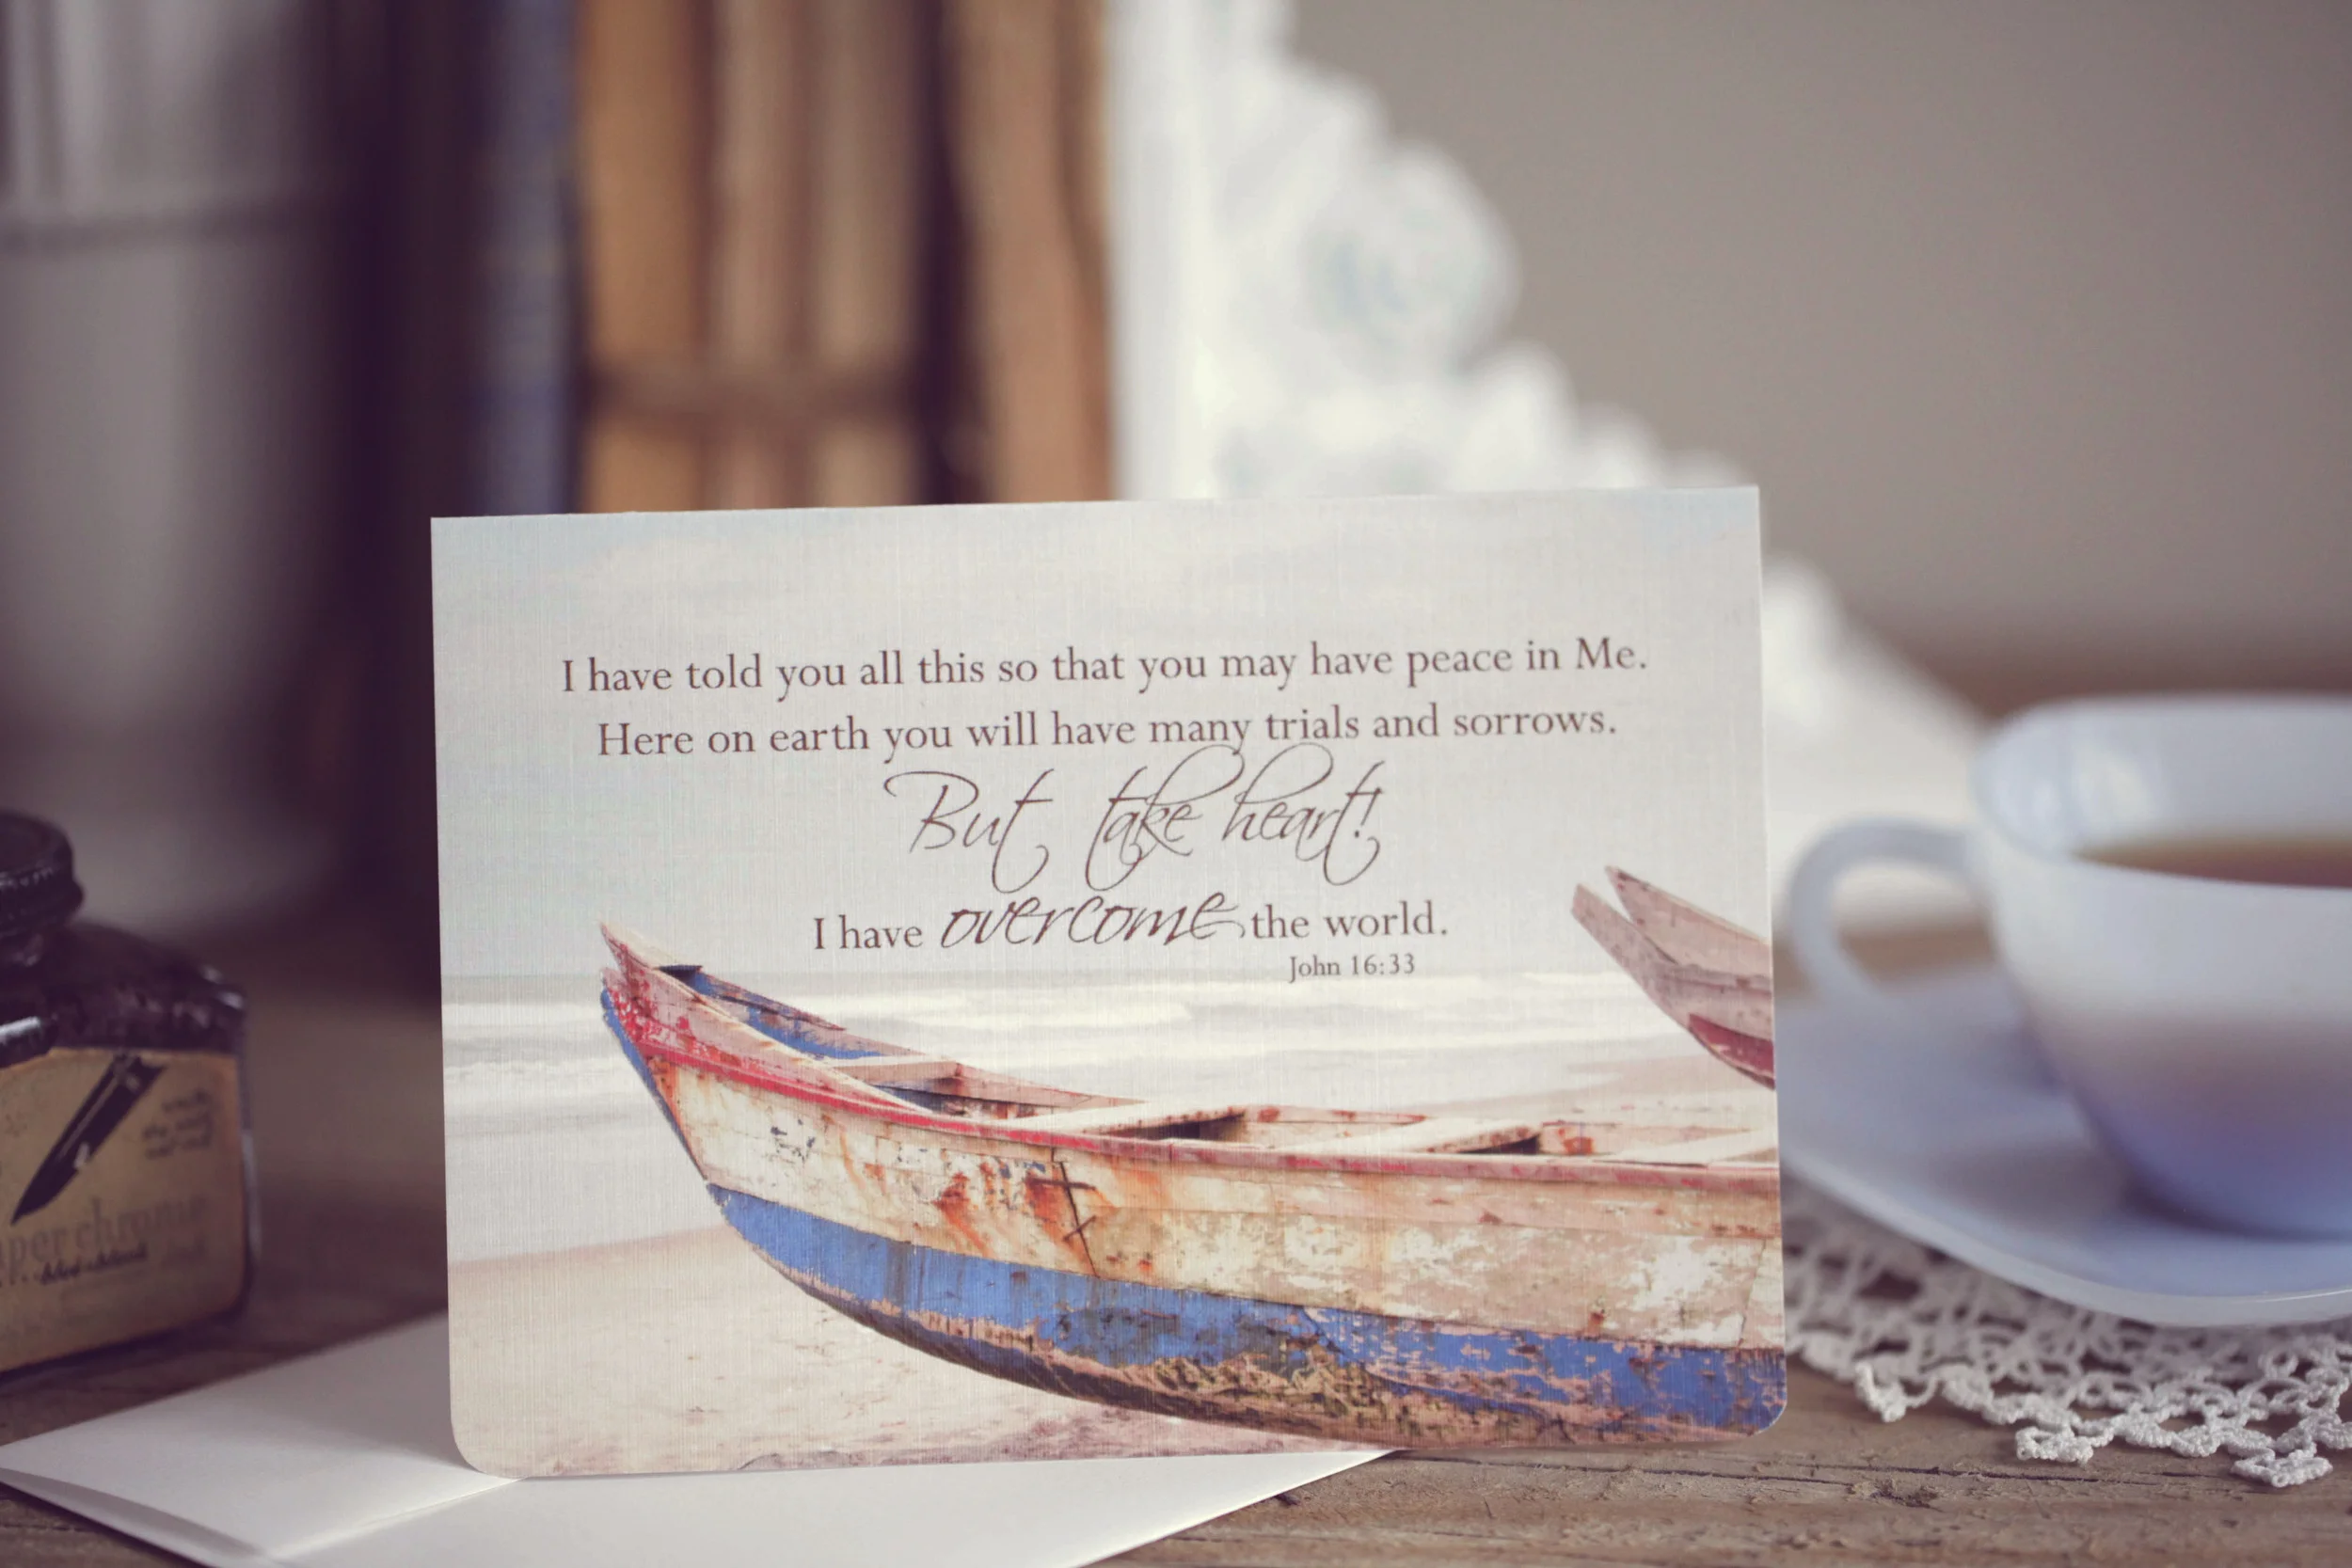 I have told you all this so that you may have peace in Me.
Here on earth you will have many trials and sorrows.
But take heart!
I have overcome the world.
John 16:33